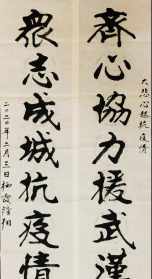 大悲心起抗疫情
齊心協力援武漢
衆志成城抗疫情
二〇二〇年二月三日